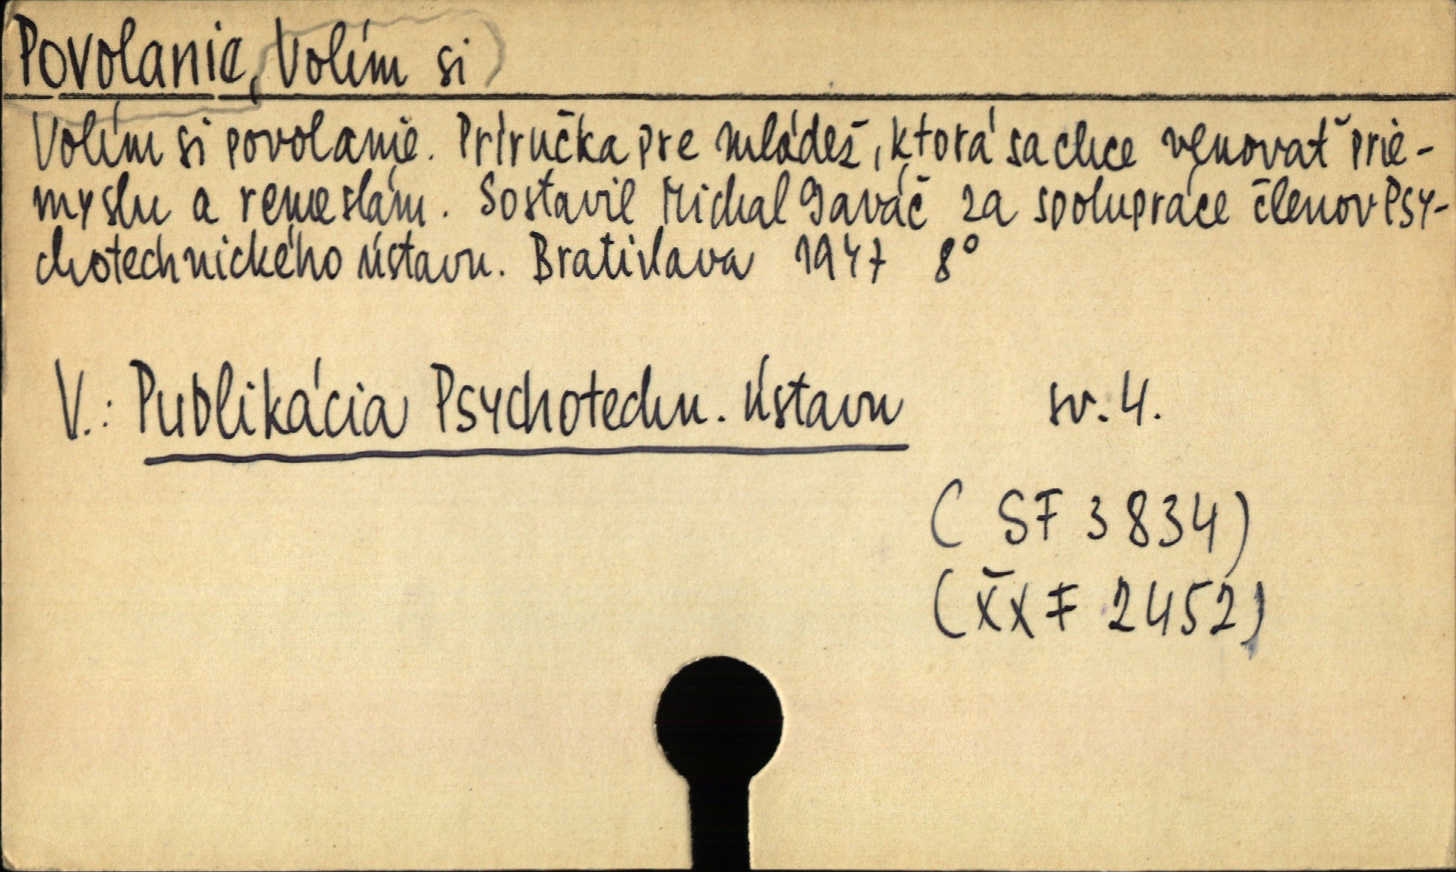 Povolanie, Volím si
Volím si povolanie. Príručka pre mládež, ktorá sa chce venovať prie-
myslu a remeslám. Sostavil Michal Gaváč za spolupráce členov Psy-
chotechnického ústavu. Bratislava 1947 8°
V.: Publikácia Psychotechn. ústavu sv. 4.
( SF 3834)
(X̄X F 2452)